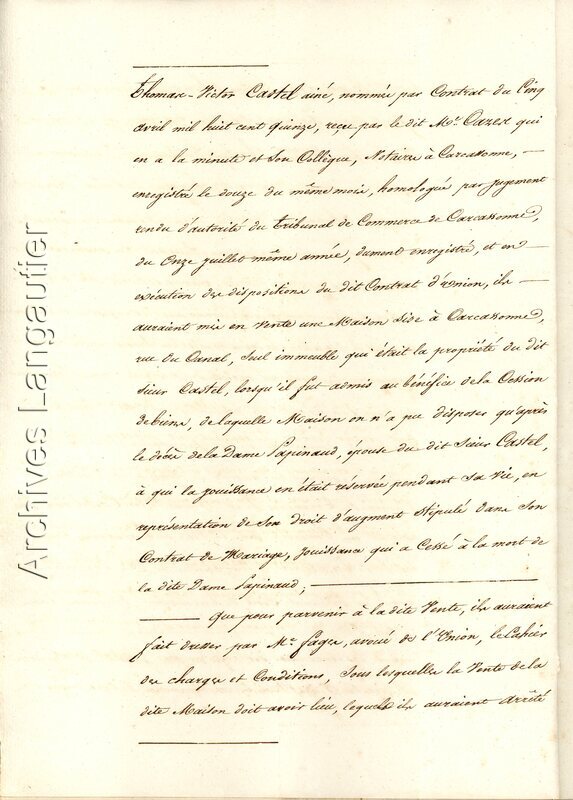 Thomas-Victor Castel ainé, nommés par Contrat du Cinq
avril mil huit cent quinze, reçu par le dit Me. Cazes qui
en a la minute et son Collègue, Notaires à Carcassonne, —
enregistré le douze du même mois, homologué par jugement
rendu d'autorité du tribunal de Commerce de Carcassonne,
du Onze juillet même année, dument enregistré, et en —
exécution des dispositions du dit Contrat d'union, ils —
auraient mis en Vente une Maison sise à Carcassonne,
rue du Canal, Seul immeuble qui était la propriété du dit
sieur Castel, lorsqu'il fut admis au bénéfice de la Cession
de biens, de laquelle Maison on n'a pu disposer qu'après
le décès de la Dame Sapinaud, épouse du dit Sieur Castel,
à qui la jouissance en était réservée pendant sa vie, en
représentation de Son droit d'augment stipulé dans Son
Contrat de Mariage, jouissance qui a Cessé à la mort de
la dite Dame Sapinaud; —
— que pour parvenir à la dite Vente, ils auraient
fait dresser par Me. Fages, avoué de l'Union, le Cahier
des charges et Conditions, Sous lesquelles la Vente de la
dite Maison doit avoir lieu, lequels ils auraient arrêté
Archives Langautier